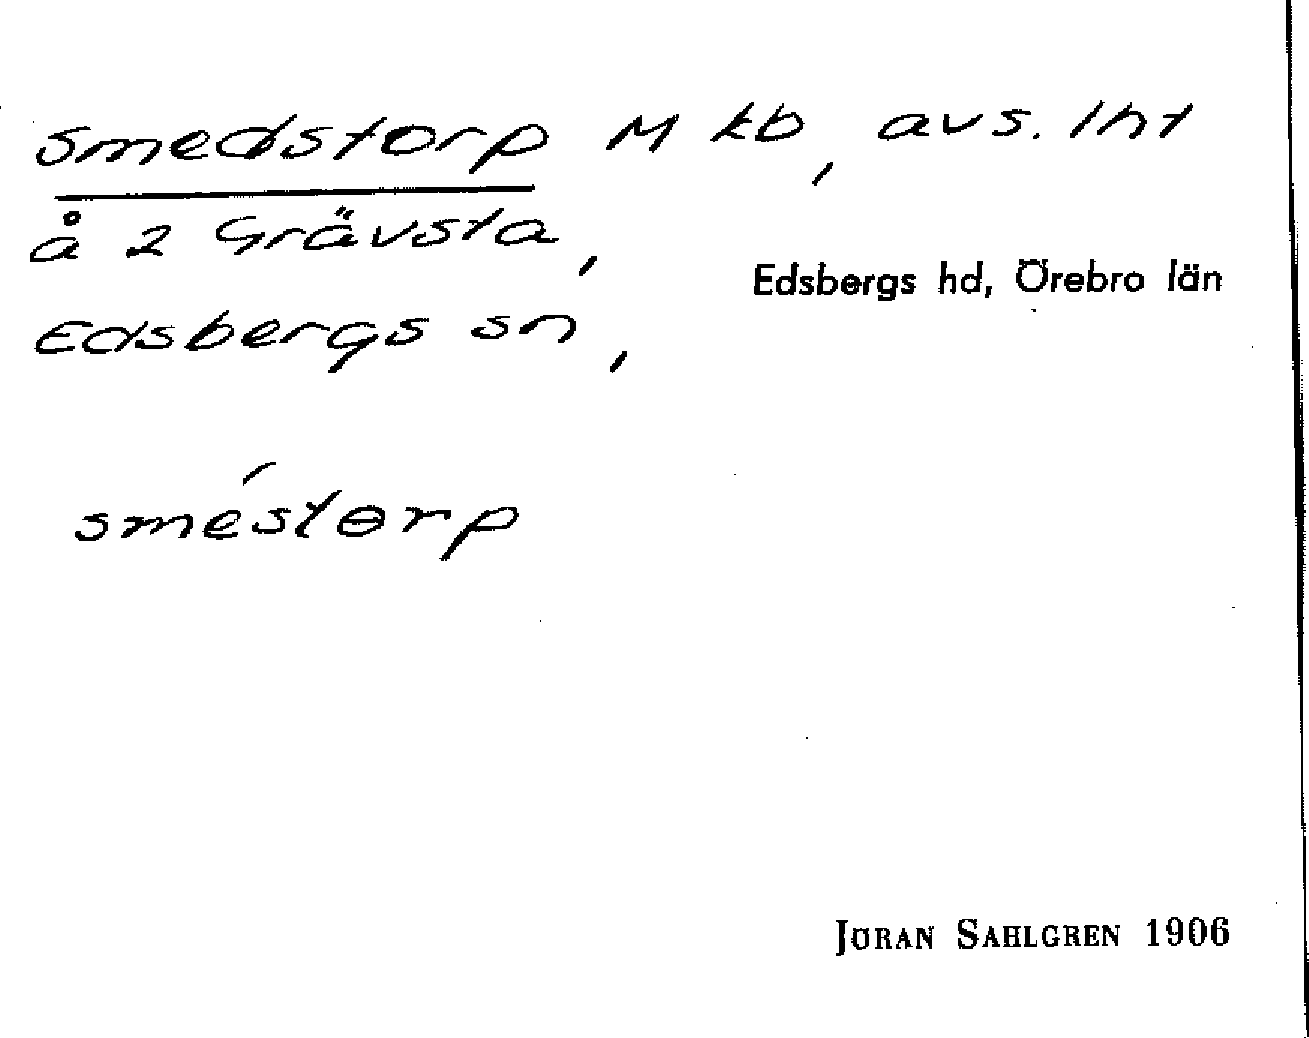 Smedstorp M kb, avs. lht
å 2 Grävsta,
Edsbergs hd, Örebro län
Edsbergs sn,
sméstɵrp
JÖRAN SAHLGREN 1906